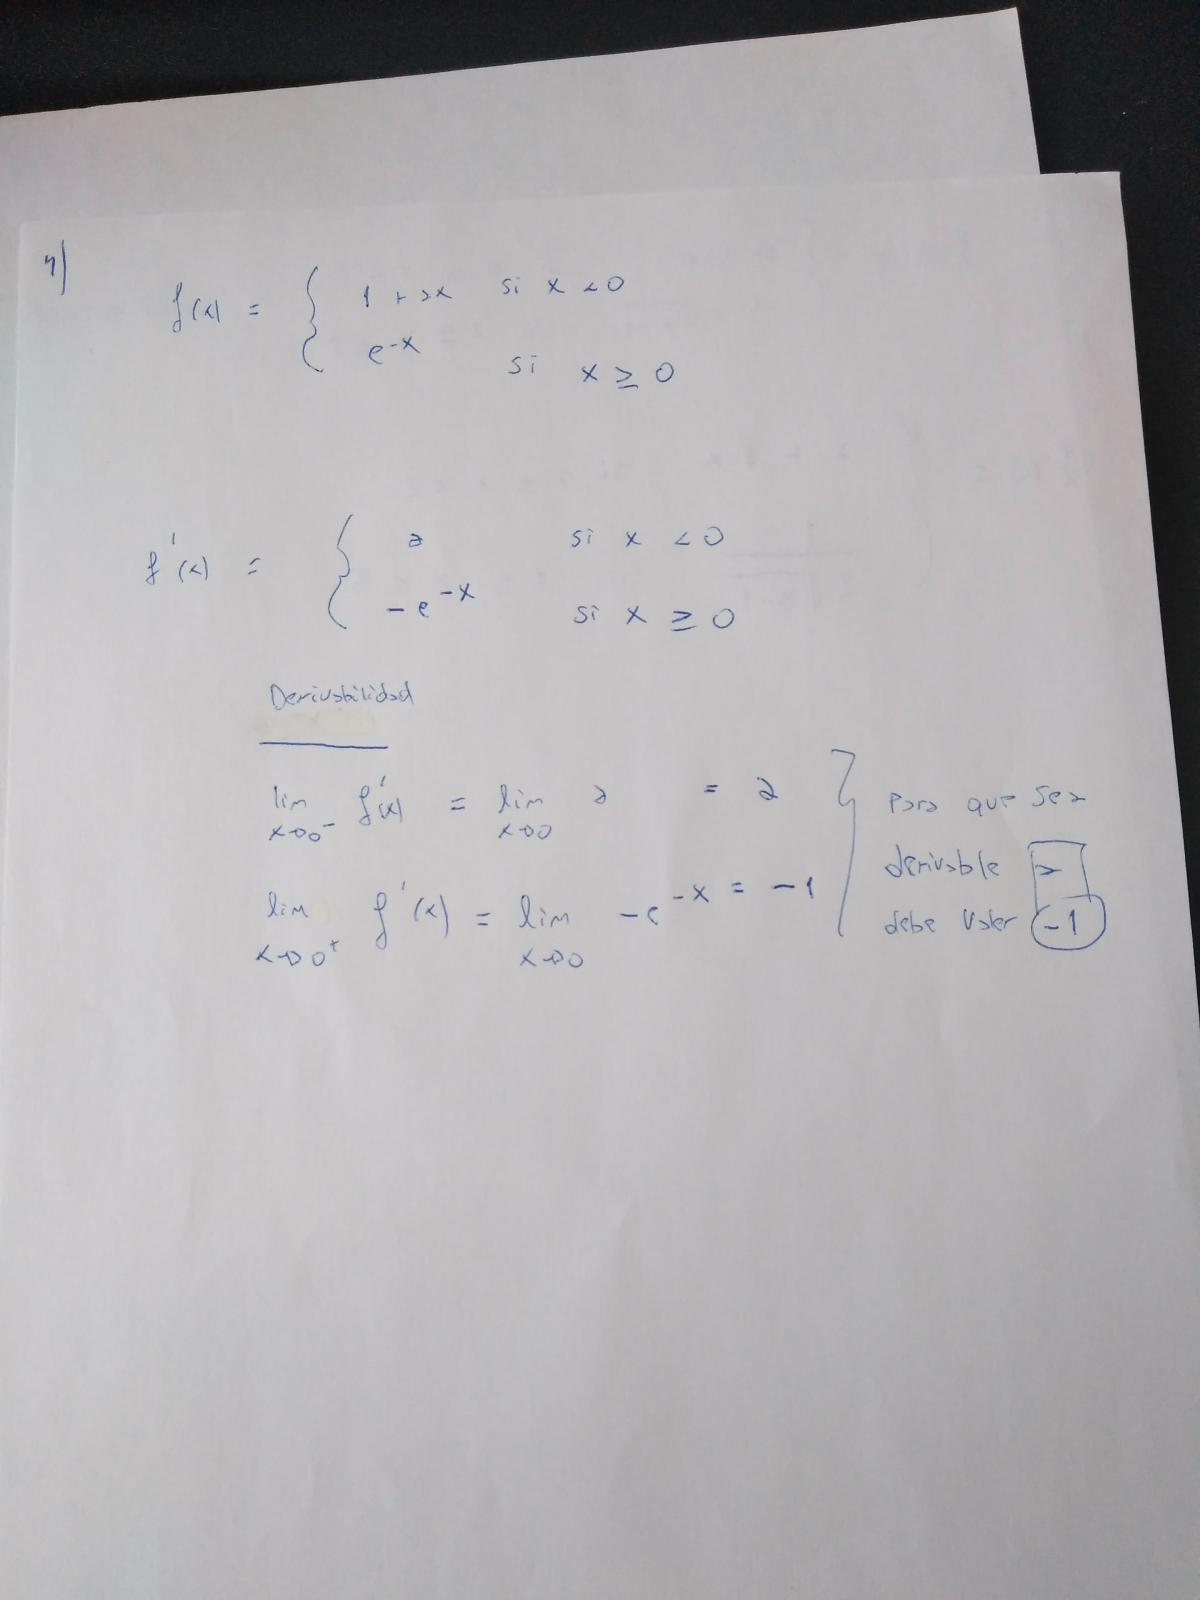 4)
f(x) = { 1 + ax si x < 0
e^-x si x ≥ 0
f'(x) = { a si x < 0
-e^-x si x ≥ 0
Derivabilidad
lim x→0- f'(x) = lim x→0 a = a
lim x→0+ f'(x) = lim x→0 -e^-x = -1
} Para que sea
derivable a
debe valer -1